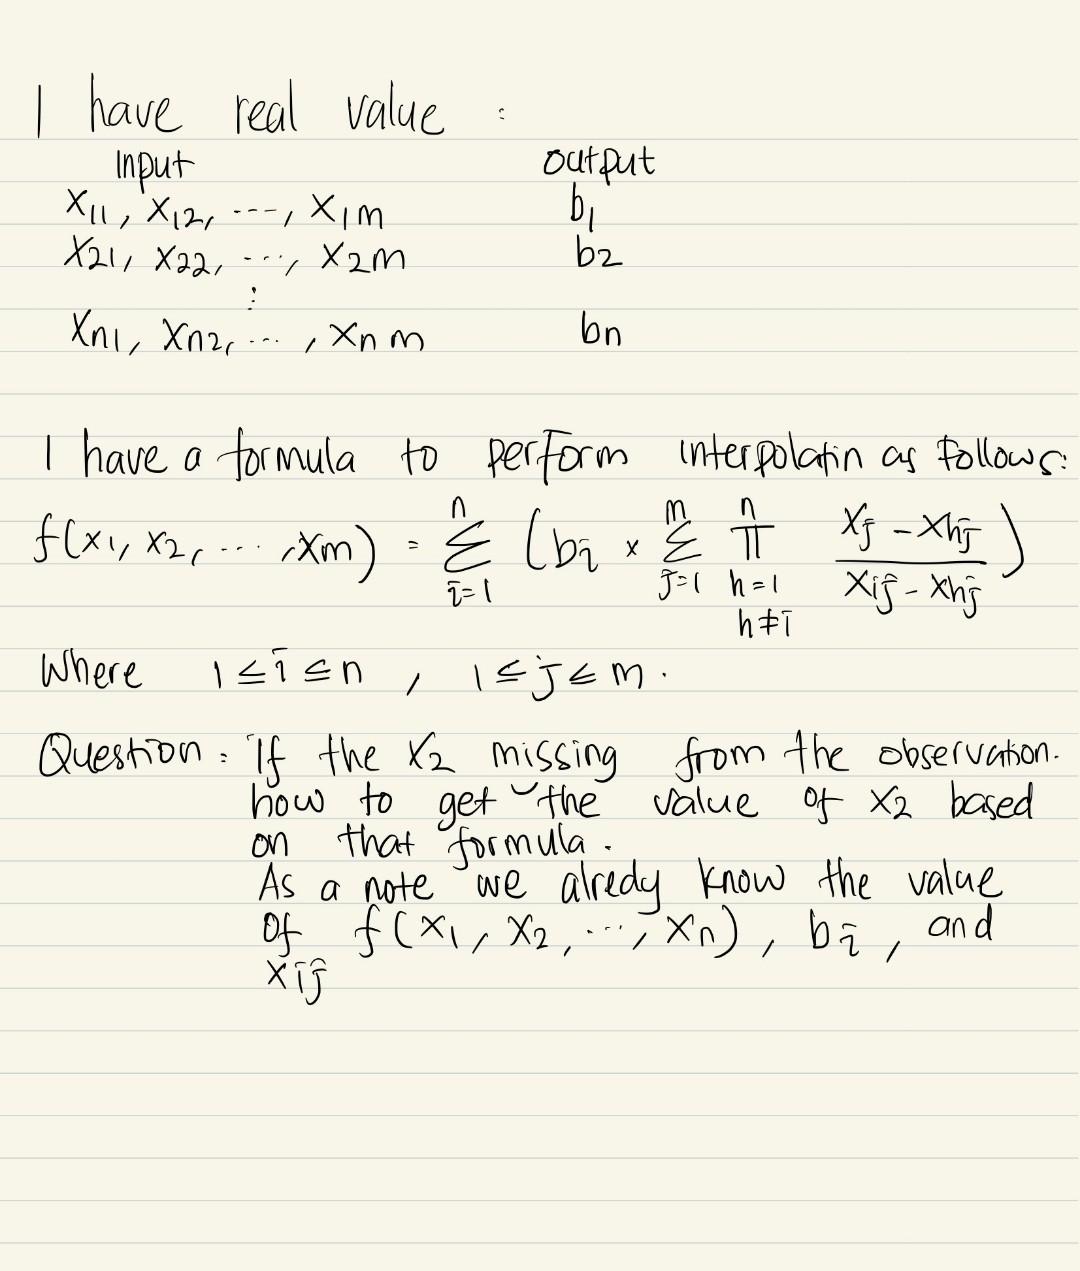 I have real value :
Input output
x11, x12, ---, x1m b1
x21, x22, ---, x2m b2
⋮
xn1, xn2, ---, xnm bn
I have a formula to perform interpolatin as follows:
f(x1, x2, ..., xm) = n Σ i=1 (bi × m Σ j=1 n Π h=1 h≠i (xj - xhj)/(xij - xhj))
Where 1 ≤ i ≤ n , 1 ≤ j ≤ m .
Question : If the x2 missing from the observation.
how to get the value of x2 based
on that formula .
As a note we alredy know the value
of f(x1, x2, ..., xn), bi , and
xij